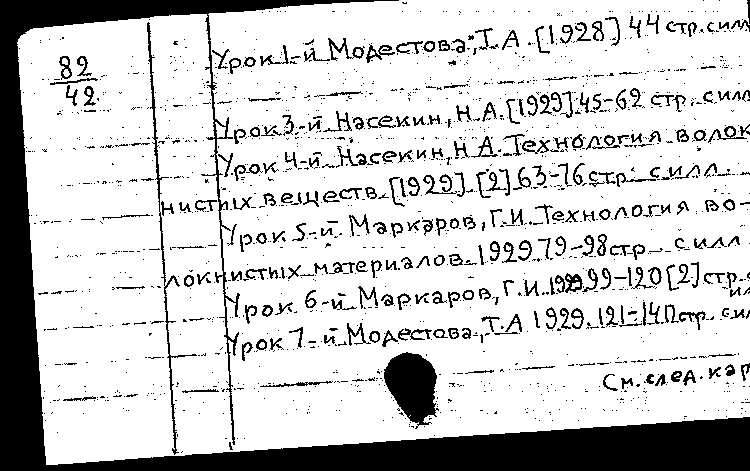 82
42
Урок 1-й Модестова, Т.А. [1928] 44 стр. с илл
Урок 3-й Насекин, Н.А. [1929] 45-62 стр. с илл
Урок 4-й Насекин, Н.А. Технология волок
нистых веществ. [1929]. [2] 63-76 стр. с илл.
Урок 5-й. Маркаров, Г.И. Технология во-
локнистых материалов. 1929. 79-98 стр. с илл
Урок 6-й Маркаров, Г.И. 1929. 99-120 [2] стр. с
ил
Урок 7-й Модестова, Т.А 1929. 121-140 стр. с ил
См. след. кар